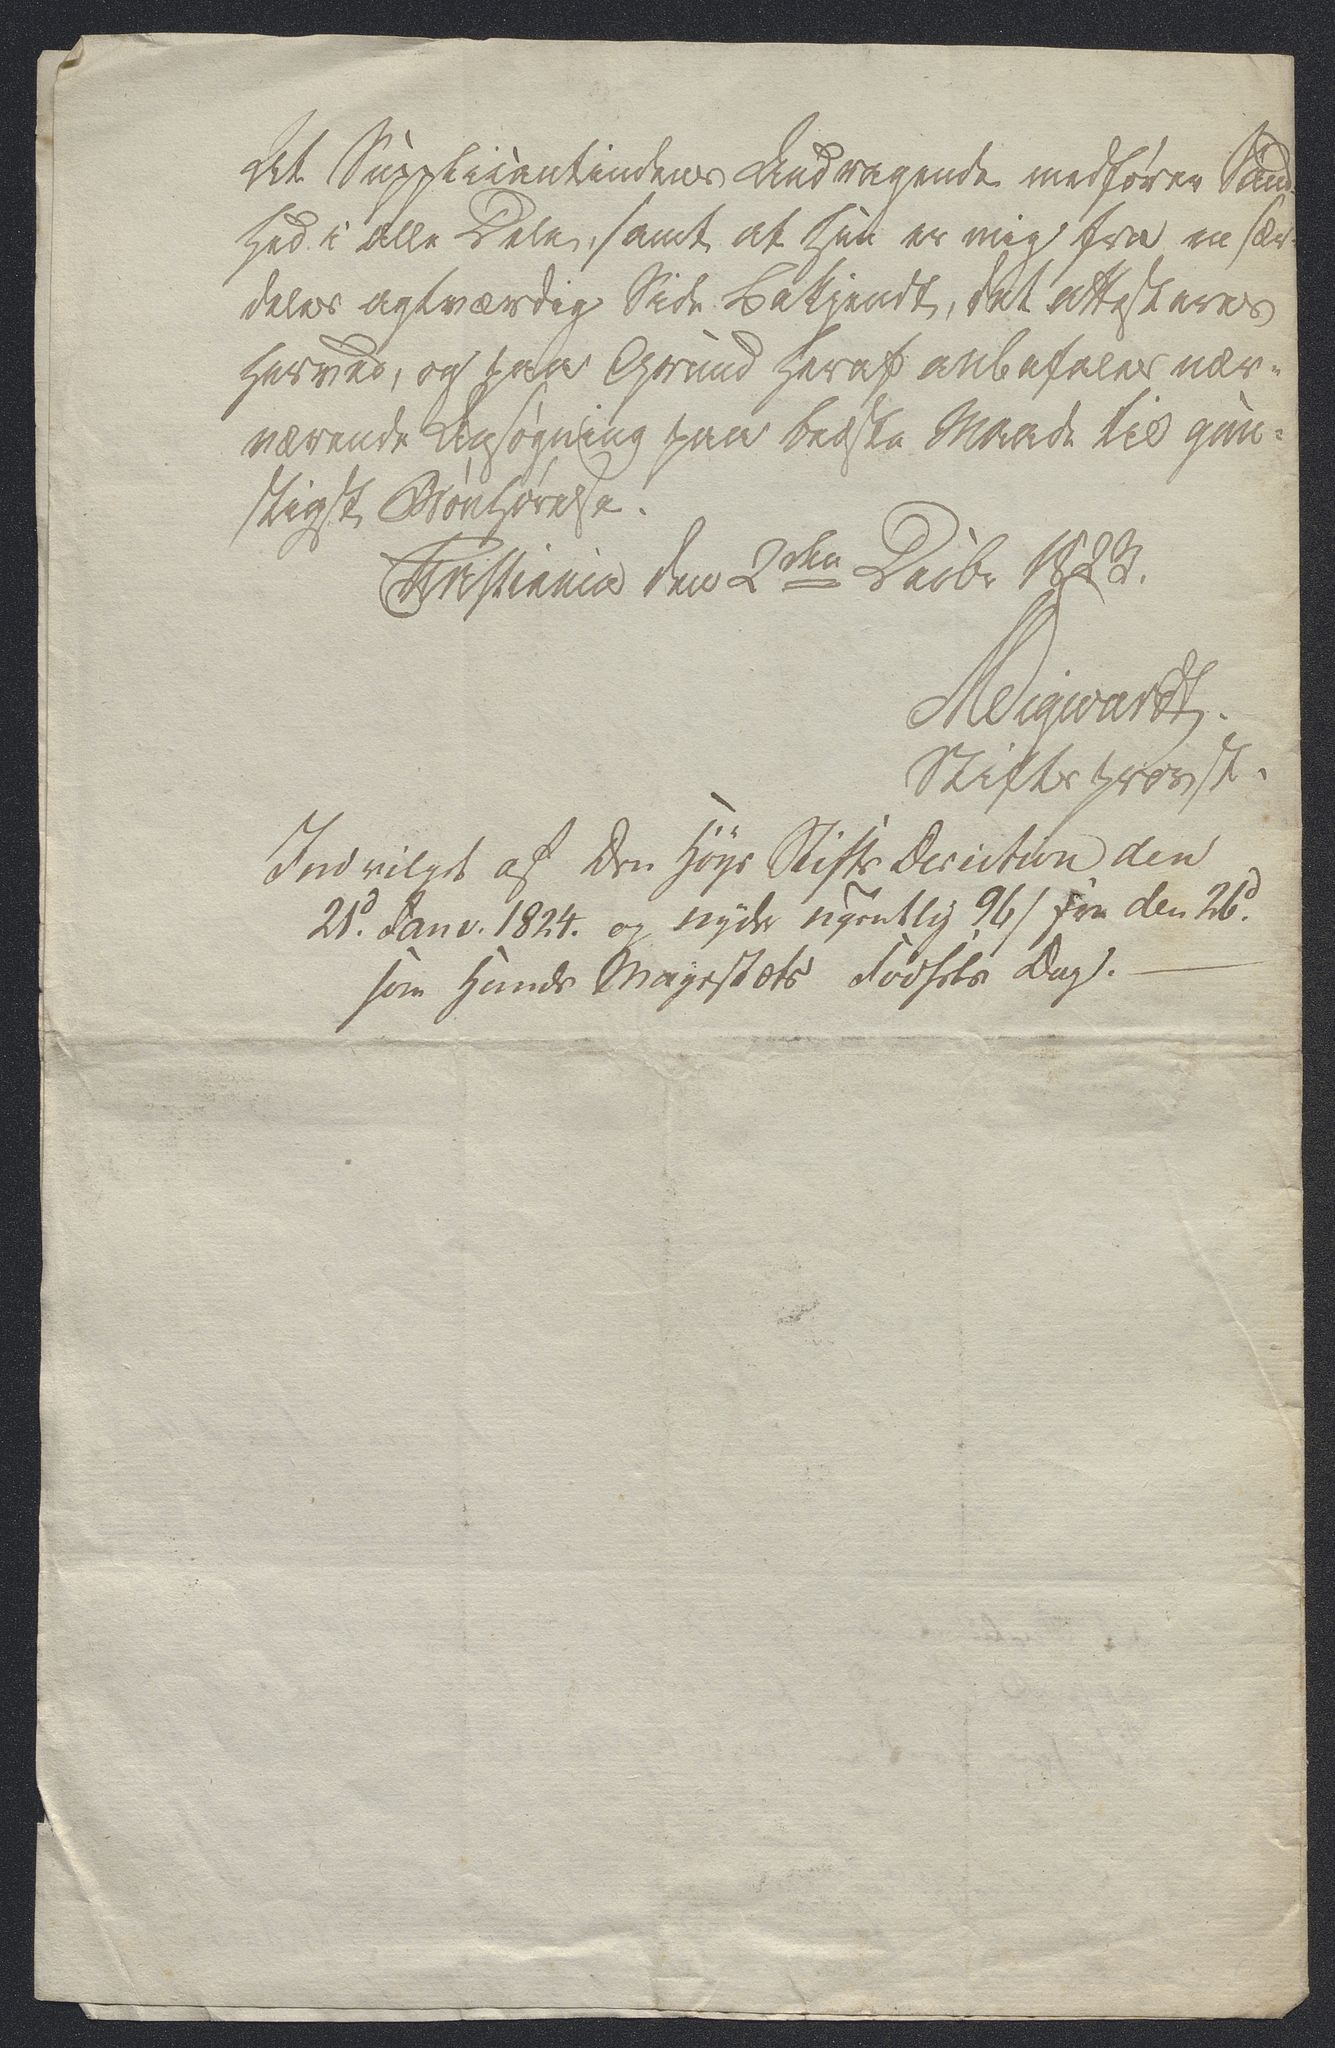 At Supplicantindens Andragende medfører Sand-
hed i alle Dele, samt at hun er mig fra en sær-
deles agtværdig Side bekjendt, det attesteres
herved, og paa Grund heraf anbefales nær-
værende Ansøgning paa bedste Maade til gun-
stigst Bønhørelse.
Christiania den 2den Decbr 1823.
Stiftsprovst.
Indvilget af den Høye Stifts Direction den
21d. Janv. 1824. og nyder ugentlig 96 s fra den 26d.
som Hands Magestæts Fødsels Dag.